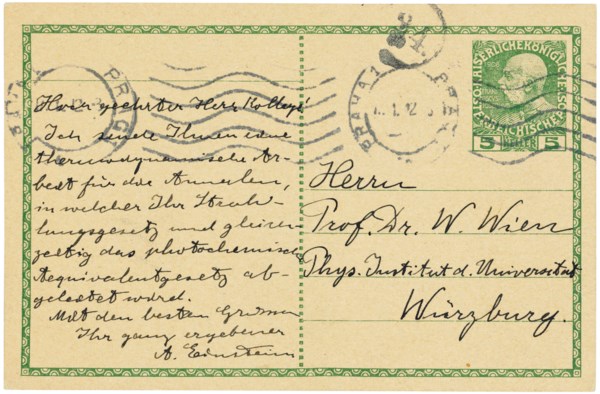 Hoch geehrter Herr Kollege!
Ich sende Ihnen eine
thermodynamische Ar-
beit für die Annalen,
in welcher Ihr Strah-
lungsgesetz und gleich-
zeitig das photochemische
Aequivalentgesetz ab-
geleitet wird.
Mit den besten Grüssen
Ihr ganz ergebener
A. Einstein
24
PRAG
PRAHA 1
PRAG
5 HELLER 5
Herrn
Prof. Dr. W. Wien
Phys. Institut d. Universität
Würzburg.